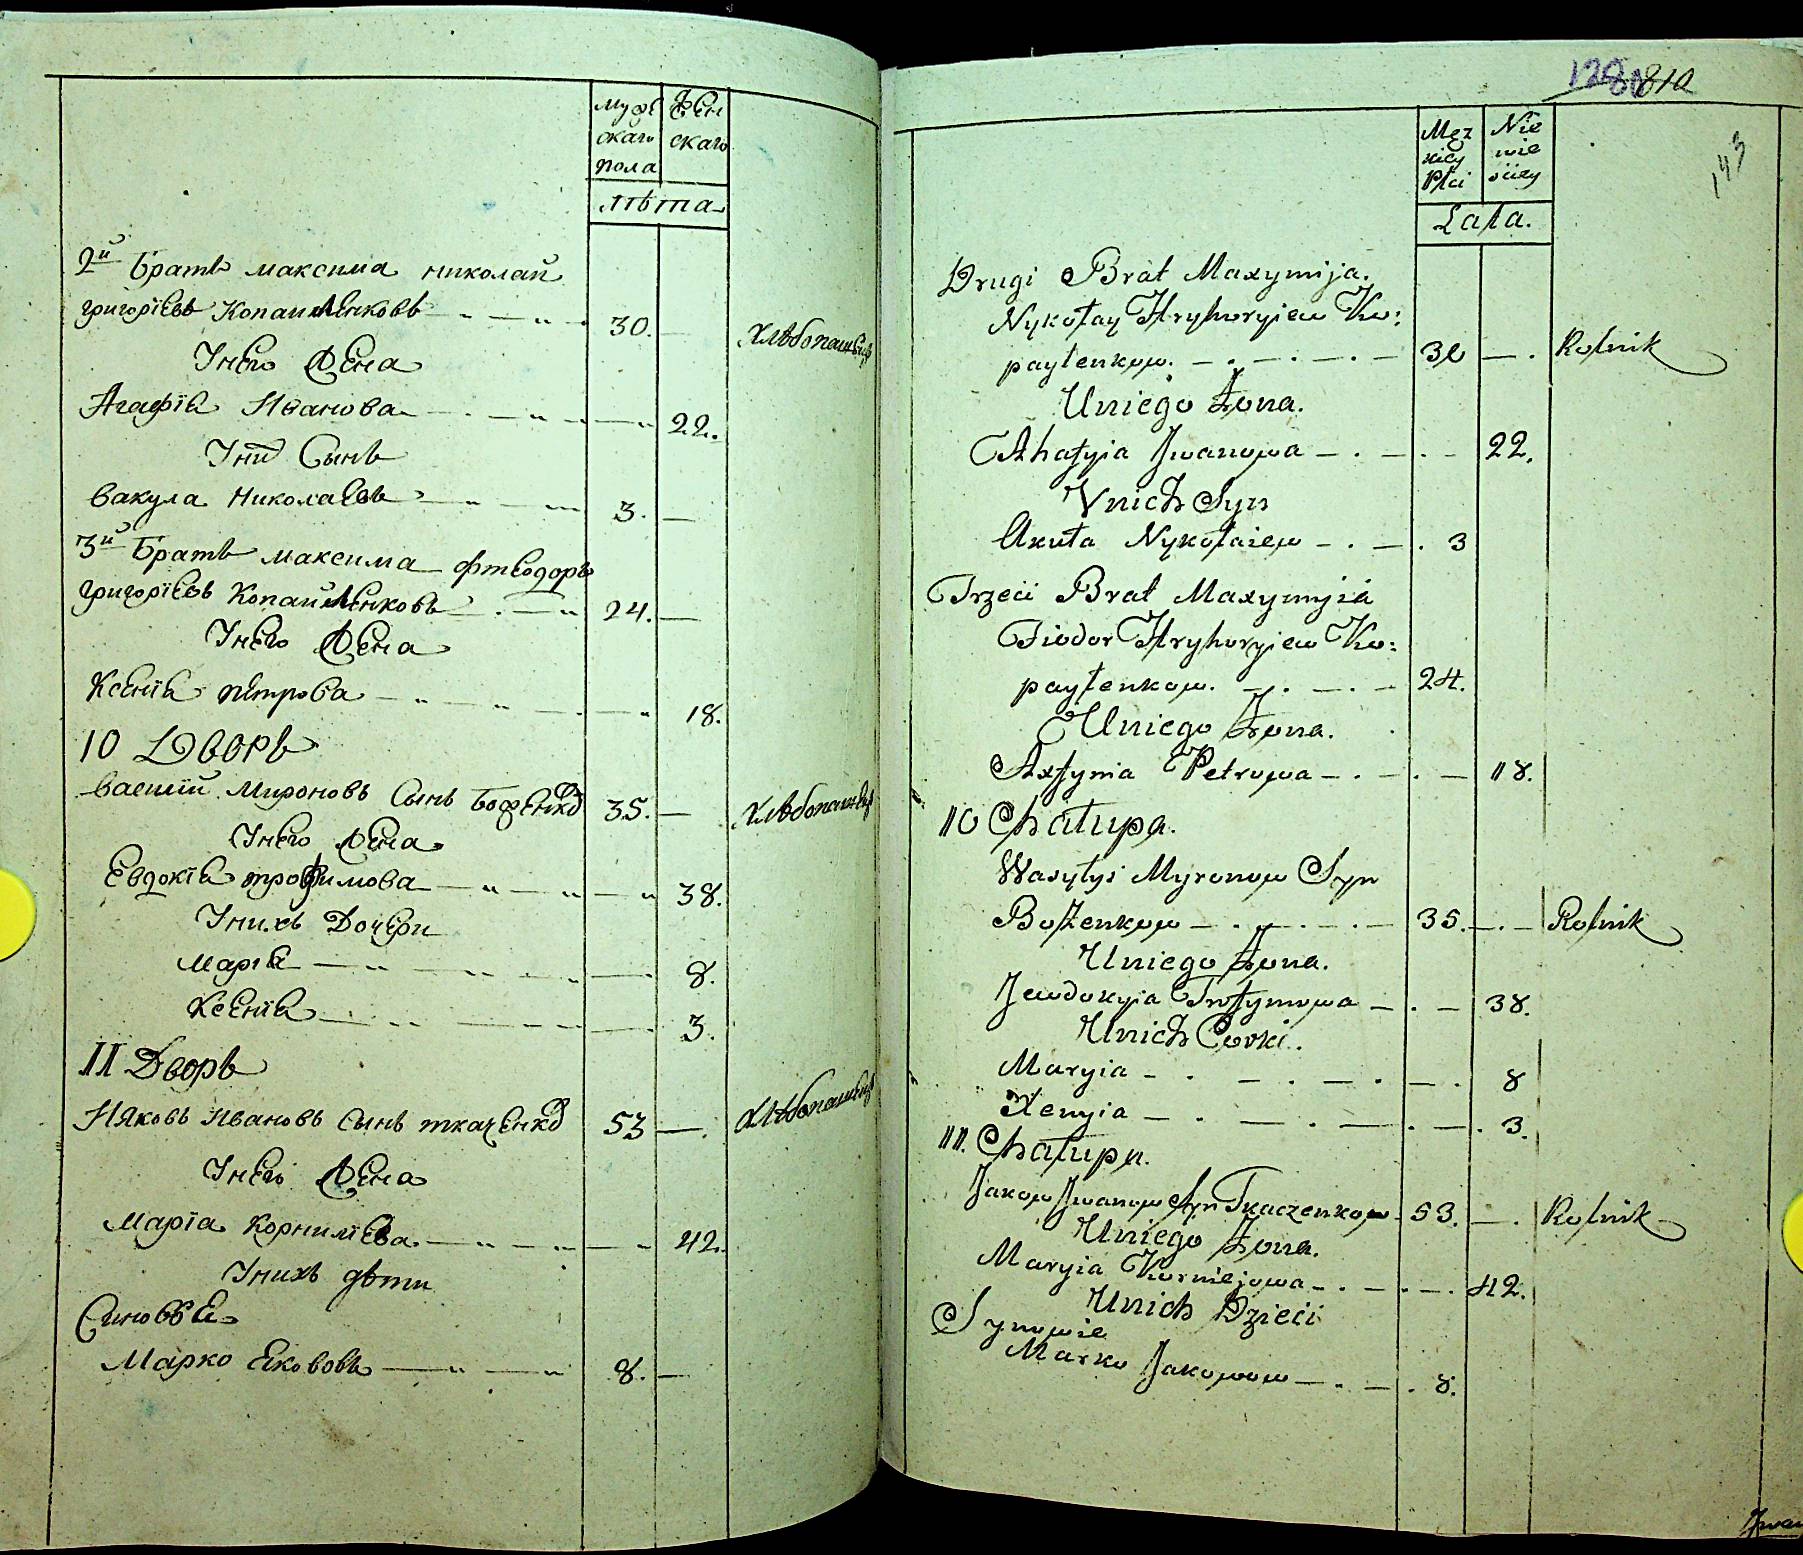 мужскаго пола
женскаго
лѣта
2й Братъ максима николай
григорїевъ Копайленковъ 30. — Хлѣбопашецъ
Унего жена
Агафїя Иванова — 22.
Уних Сынъ
Вакула николаевъ 3. —
3й Братъ максима фтеодоръ
григорїевъ Копайленковъ 24. —
Унего жена
Ксенїя петрова — 18.
10 Дворъ
василїй Мироновъ Сынъ Боженков 35. — Хлѣбопашецъ
Унего жена
Евдокїя трофимова — 38.
Унихъ Дочери
марїя — 8.
Ксенїя — 3.
11 Дворъ
Ияковъ Ивановъ Сынъ ткаченков 53 — Хлѣбопашецъ
Унего жена
Марїа Корнилїева — 42.
Унихъ дѣти
Синовѣя
Марко Явововъ — 8. —
128 810
143
Męz kiey Płci
Nie wie sciey
Lata.
Drugi Brat Maxymija.
Nykołay Hryhoryiew Ko:
paylenkow. — 30 — Rolnik
Uniego Żona.
Ahafyia Jwanowa — 22.
Vnich Syn
Akuła Nykołaiew — 3
Trzeci Brat Maxymyia
Fiodor Hryhoryiew Ko:
paylenkow. — 24.
Uniego Żona.
Axynia Petrowa — 18.
10 Chałupa.
Wasylyi Myronow Syn
Bożenkow — 35. — Rolnik
Uniego Żona.
Jewdokyia Trofymowa — 38.
Unich Corki.
Maryia — 8
Xenyia — 3.
11. Chałupa.
Jakow Jwanow Syn Tkaczenkow 53. — Rolnik
Uniego Żona.
Maryia Korniejowa — 42.
Unich Dzieci
Synowie
Marko Jakowow — 8.